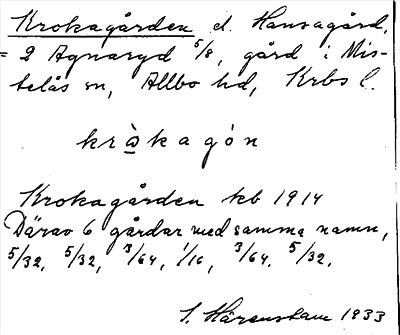 Krokagården el. Hansagård,
= 2 Agnaryd 5/8, gård i Mis-
telås sn, Allbo hd, Krbs l.
kròkagón
Krokagården kb 1914
Därav 6 gårdar med samma namn,
5/32, 5/32, 3/64, 1/16, 3/64, 5/32.
S. Hårenstam 1933